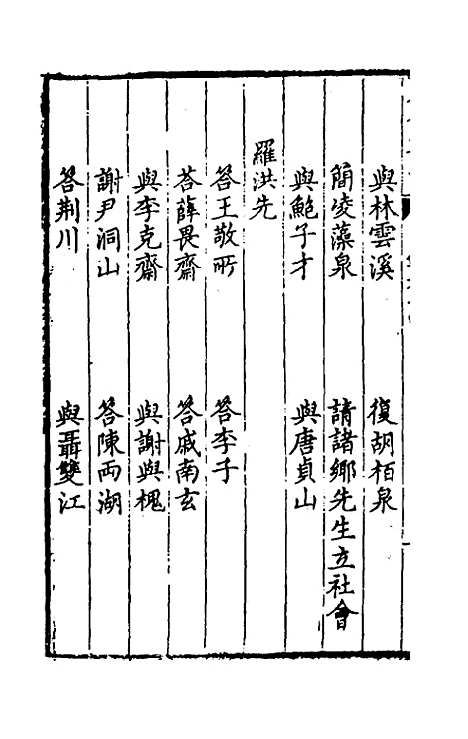 與林雲溪　復胡栢泉
簡凌藻泉　請諸鄉先生立社會
與鮑子才　與唐貞山
羅洪先
答王敬所　答李子
荅薛畏齋　答戚南玄
與李克齋　與謝與槐
謝尹洞山　答陳兩湖
答荆川　與聶雙江